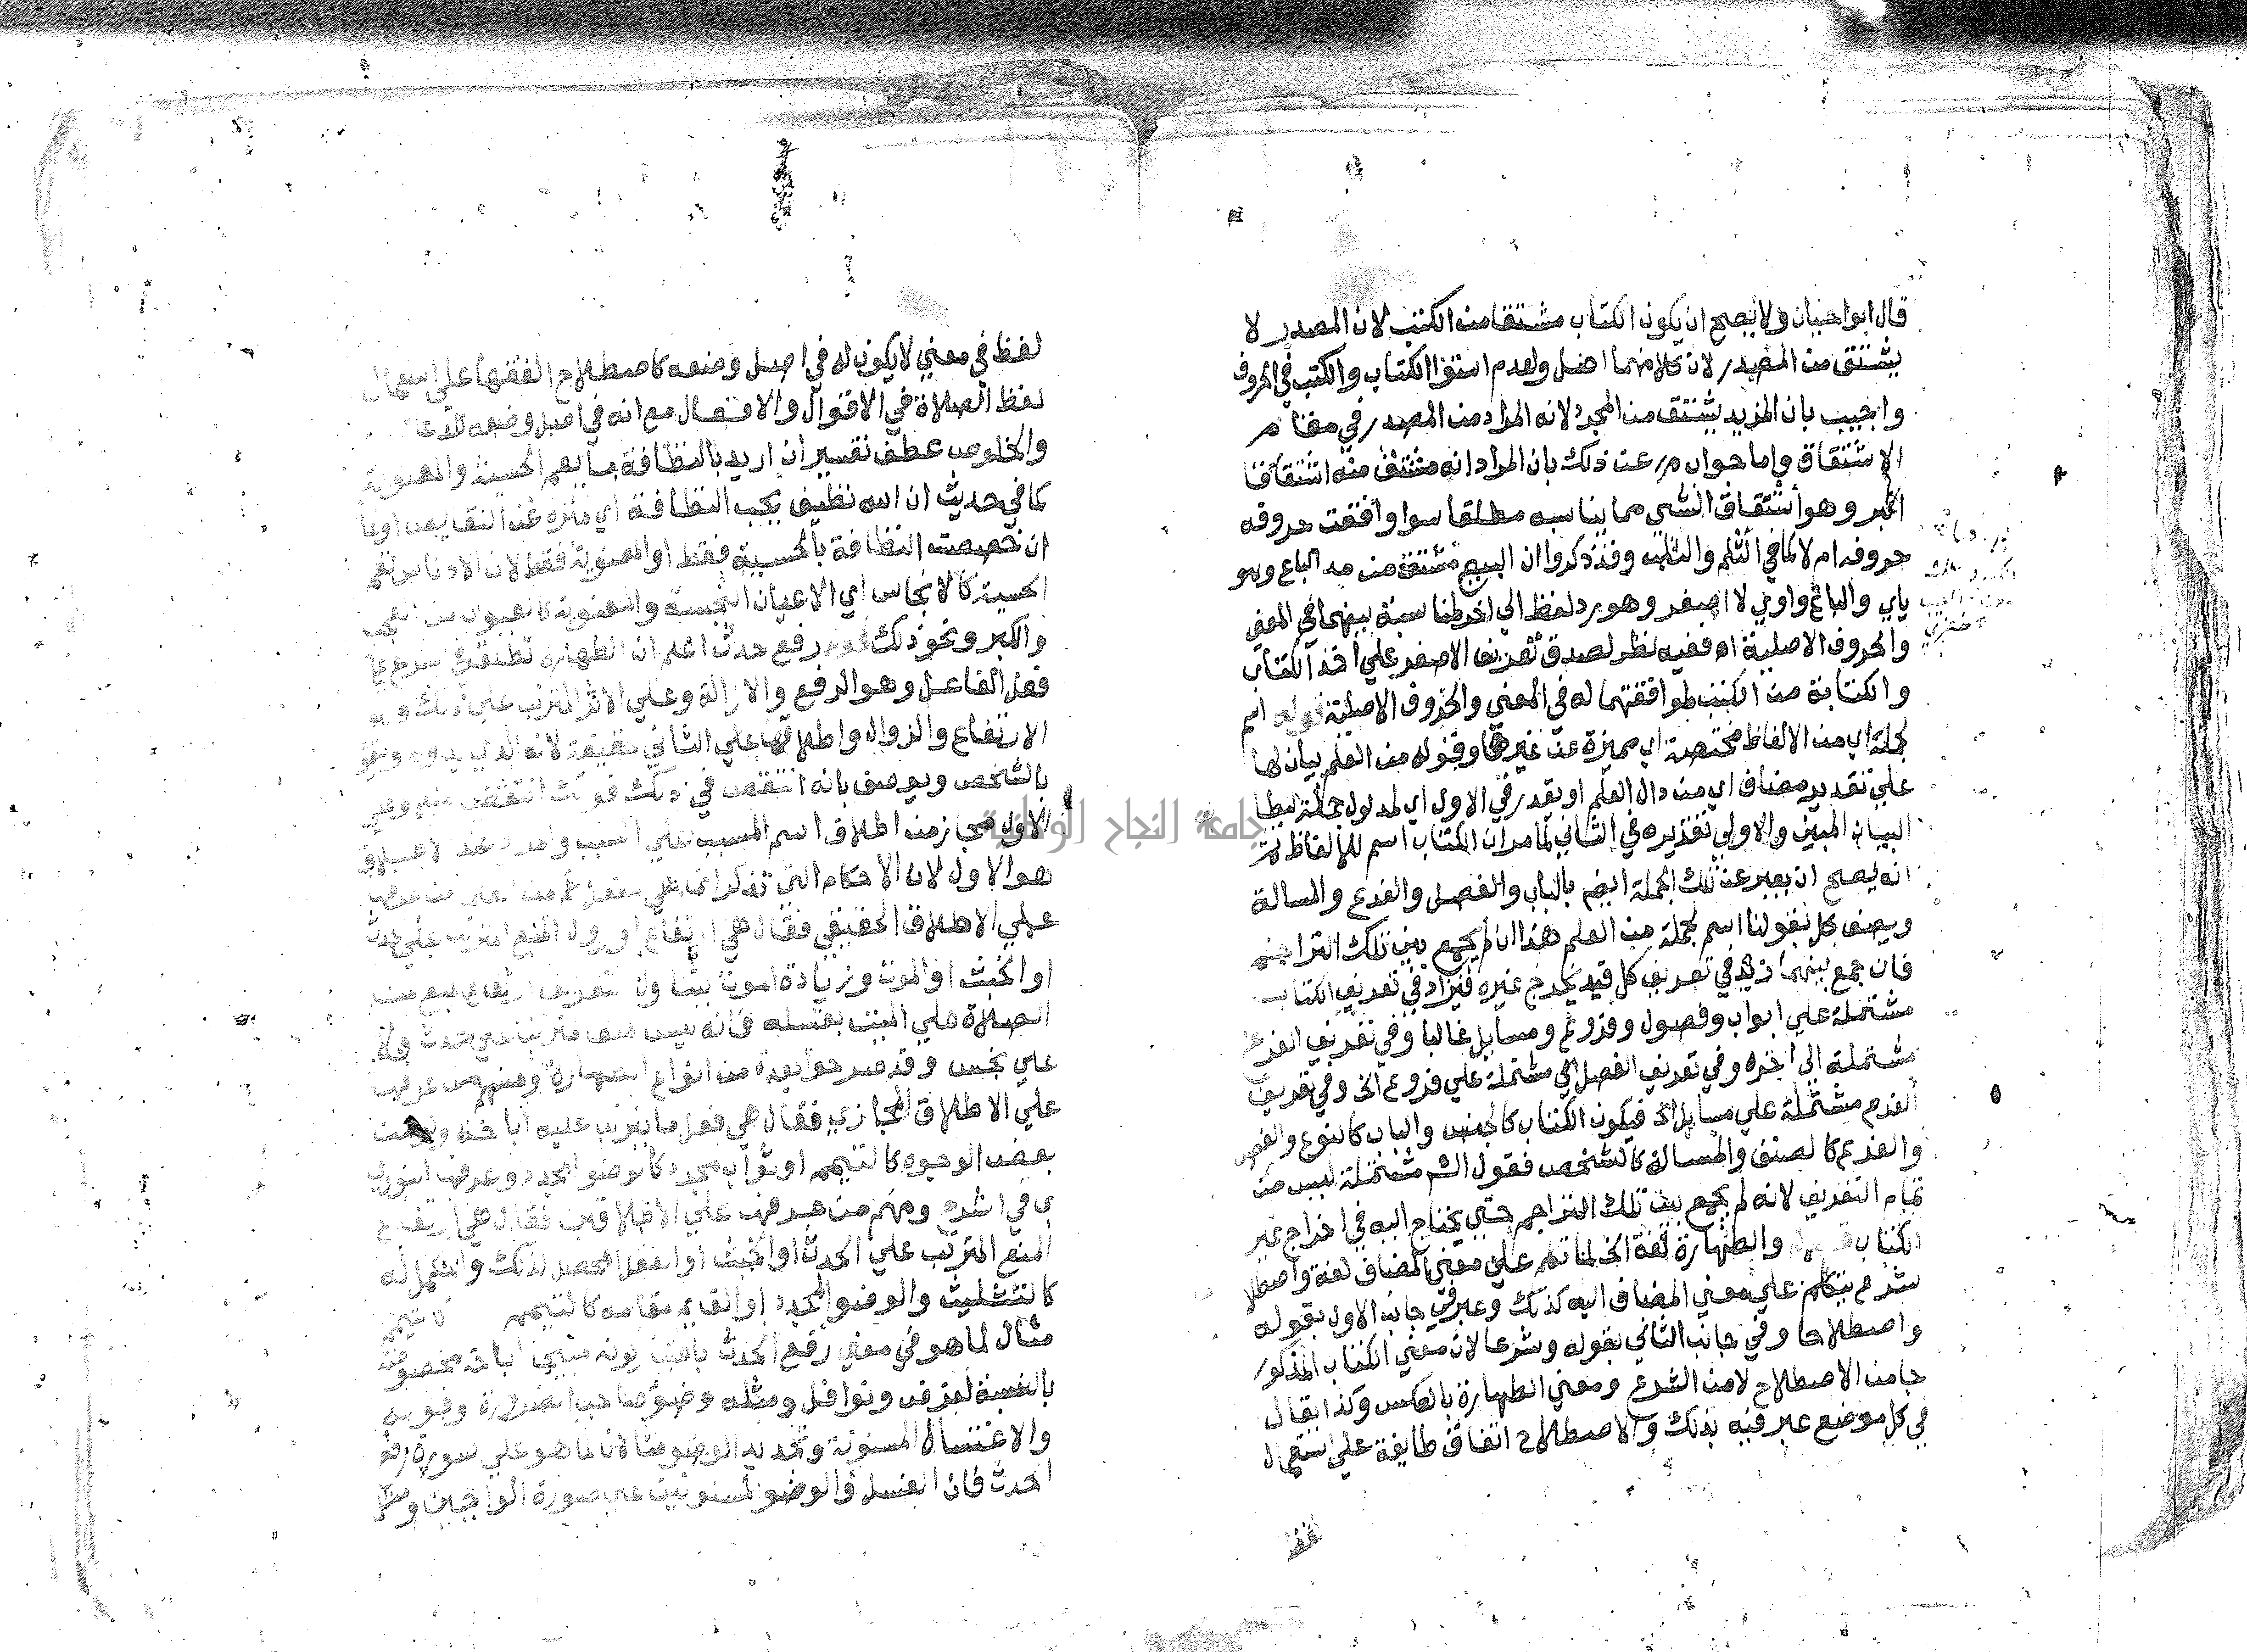 قال ابوا حيان ولا يصح ان يكون الكتاب مشتقا من الكتب لان المصدر لا
يشتق من المصدر لان كلا منهما اصل ولعدم استوا الكتاب والكتب في الحروف
واجيب بان المزيد يشتق من المجرد لانه المراد من المصدر في مقام
الاشتقاق واما جواب م ر عن ذلك بان المراد انه مشتق منه اشتقاقا
اكبر وهو اشتقاق الشي مما يناسبه مطلقا سوا وافقت حروفه
حروفه ام لا كما في الثلم والثلب وقد ذكروا ان البيع مشتق من مد الباع وهو
ياي والباع واوي لا اصغر وهو رد لفظ الي اخر لمناسبة بينهما في المعني
والحروف الاصلية اه ففيه نظر لصدق تعريف الاصغر علي اخذ الكتاب
والكتابة من الكتب لموافقتهما له في المعني والحروف الاصلية قوله اسم
لجملة اي من الالفاظ مختصة اي مميزة عن غيرها وقوله من العلم بيان لها
علي تقدير مضاف اي من دال العلم او يقدر في الاول اي لمدلول جملة ليطا
البيان المبين والاولي تقديره في الثاني لما مر ان الكتاب اسم للالفاظ ثم
انه يصح ان يعبر عن تلك الجملة ايضا بالباب والفصل والفرع والمسالة
ويصف كل بقولنا اسم لجملة من العلم هذا ان لم يجمع بين تلك التراجم
فان جمع بينهما زيد في تعريف كل قيد يخرج غيره فيزاد في تعريف الكتاب
مشتملة علي ابواب وفصول وفروع ومسايل غالبا وفي تعريف الفرع
مشتملة الي اخره وفي تعريف الفصل اي مشتملة علي فروع الخ وفي تعريف
الفرع مشتملة علي مسايل الخ فيكون الكتاب كالجنس والباب كالنوع والفصل
والفرع كالصنف والمسالة كالشخص فقول الش مشتملة ليس من
تمام التعريف لانه لم يجمع بين تلك التراجم حتي يحتاج اليه في اخراج غير
الكتاب قوله والطهارة لغة الخ لما تكلم علي معني المضاف لغة واصطلا
شرع يتكلم علي معني المضاف اليه كذلك وعبر في جانب الاول بقوله
واصطلاحا وفي جانب الثاني بقوله وشرعا لان معني الكتاب المذكور
جا من الاصطلاح لا من الشرع ومعني الطهارة بالعكس وكذا يقال
في كل موضع عبر فيه بذلك والاصطلاح اتفاق طايفة علي استعمال
لفظ
لفظ في معني لا يكون له في اصل وضعه كاصطلاح الفقها علي استعمال
لفظ الصلاة في الاقوال والافعال مع انه في اصل وضعه للدعا
والخلوص عطف تفسير ان اريد بالنظافة ما يعم الحسية والمعنوية
كما في حديث ان الله نظيف يحب النظافة اي منزه عن النقايص او
ان خصصت النظافة بالحسية فقط او المعنوية فقط لان الادناس تعم
الحسية كالانجاس اي الاعيان النجسة والمعنوية كالعيوب من العجب
والكبر ونحو ذلك قوله رفع حدث اعلم ان الطهارة تطلق في الشرع علي
فعل الفاعل وهو الرفع والازالة وعلي الاثر المترتب علي ذلك وهو
الارتفاع والزوال واطلاقها علي الثاني حقيقة لانه الذي يدوم ويقوم
بالشخص ويوصف بانه انتقض في ذلك قولك انتقض وضوءه وعلي
الاول مجاز من اطلاق اسم المسبب علي السبب والمراد عند الاطلاق
هو الاول لان الاحكام التي تذكر انما هي
علي الاطلاق الحقيقي فقال هي ارتفاع او زوال المنع المترتب علي حدث
او الخبث او الموت وزيادة الموت ليتناول التعريف ارتفاع منع من
الصلاة علي الميت بغسله فانه ليس منعا مترتبا علي حدث ولا
علي نجس وقد صرحوا بعده من انواع الطهارة ومنهم من عرفها
علي الاطلاق المجازي فقال هي فعل ما يترتب عليه اباحة ولو من
بعض الوجوه كالتيمم او ثواب مجرد كالوضو المجدد وعرفها النووي
ومنهم من عرفها علي الاطلاقين فقال هي ارتفاع
المنع المترتب علي الحدث او الخبث او الفعل المحصل لذلك والمكمل له
كالتثليث والوضو المجدد او القايم مقامه كالتيمم
مثال لما هو في معني رفع الحدث باعتبار كونه مبيحا اباحة مخصوصة
بالنسبة لفرض ونوافل ومثله وضو صاحب الضرورة وقوله
والاغتسال المسنونة وتجديد الوضو مثالان لما هو علي صورة رفع
الحدث فان الغسل والوضو المسنونين علي صورة الواجبين
جامعة النجاح الوطنية